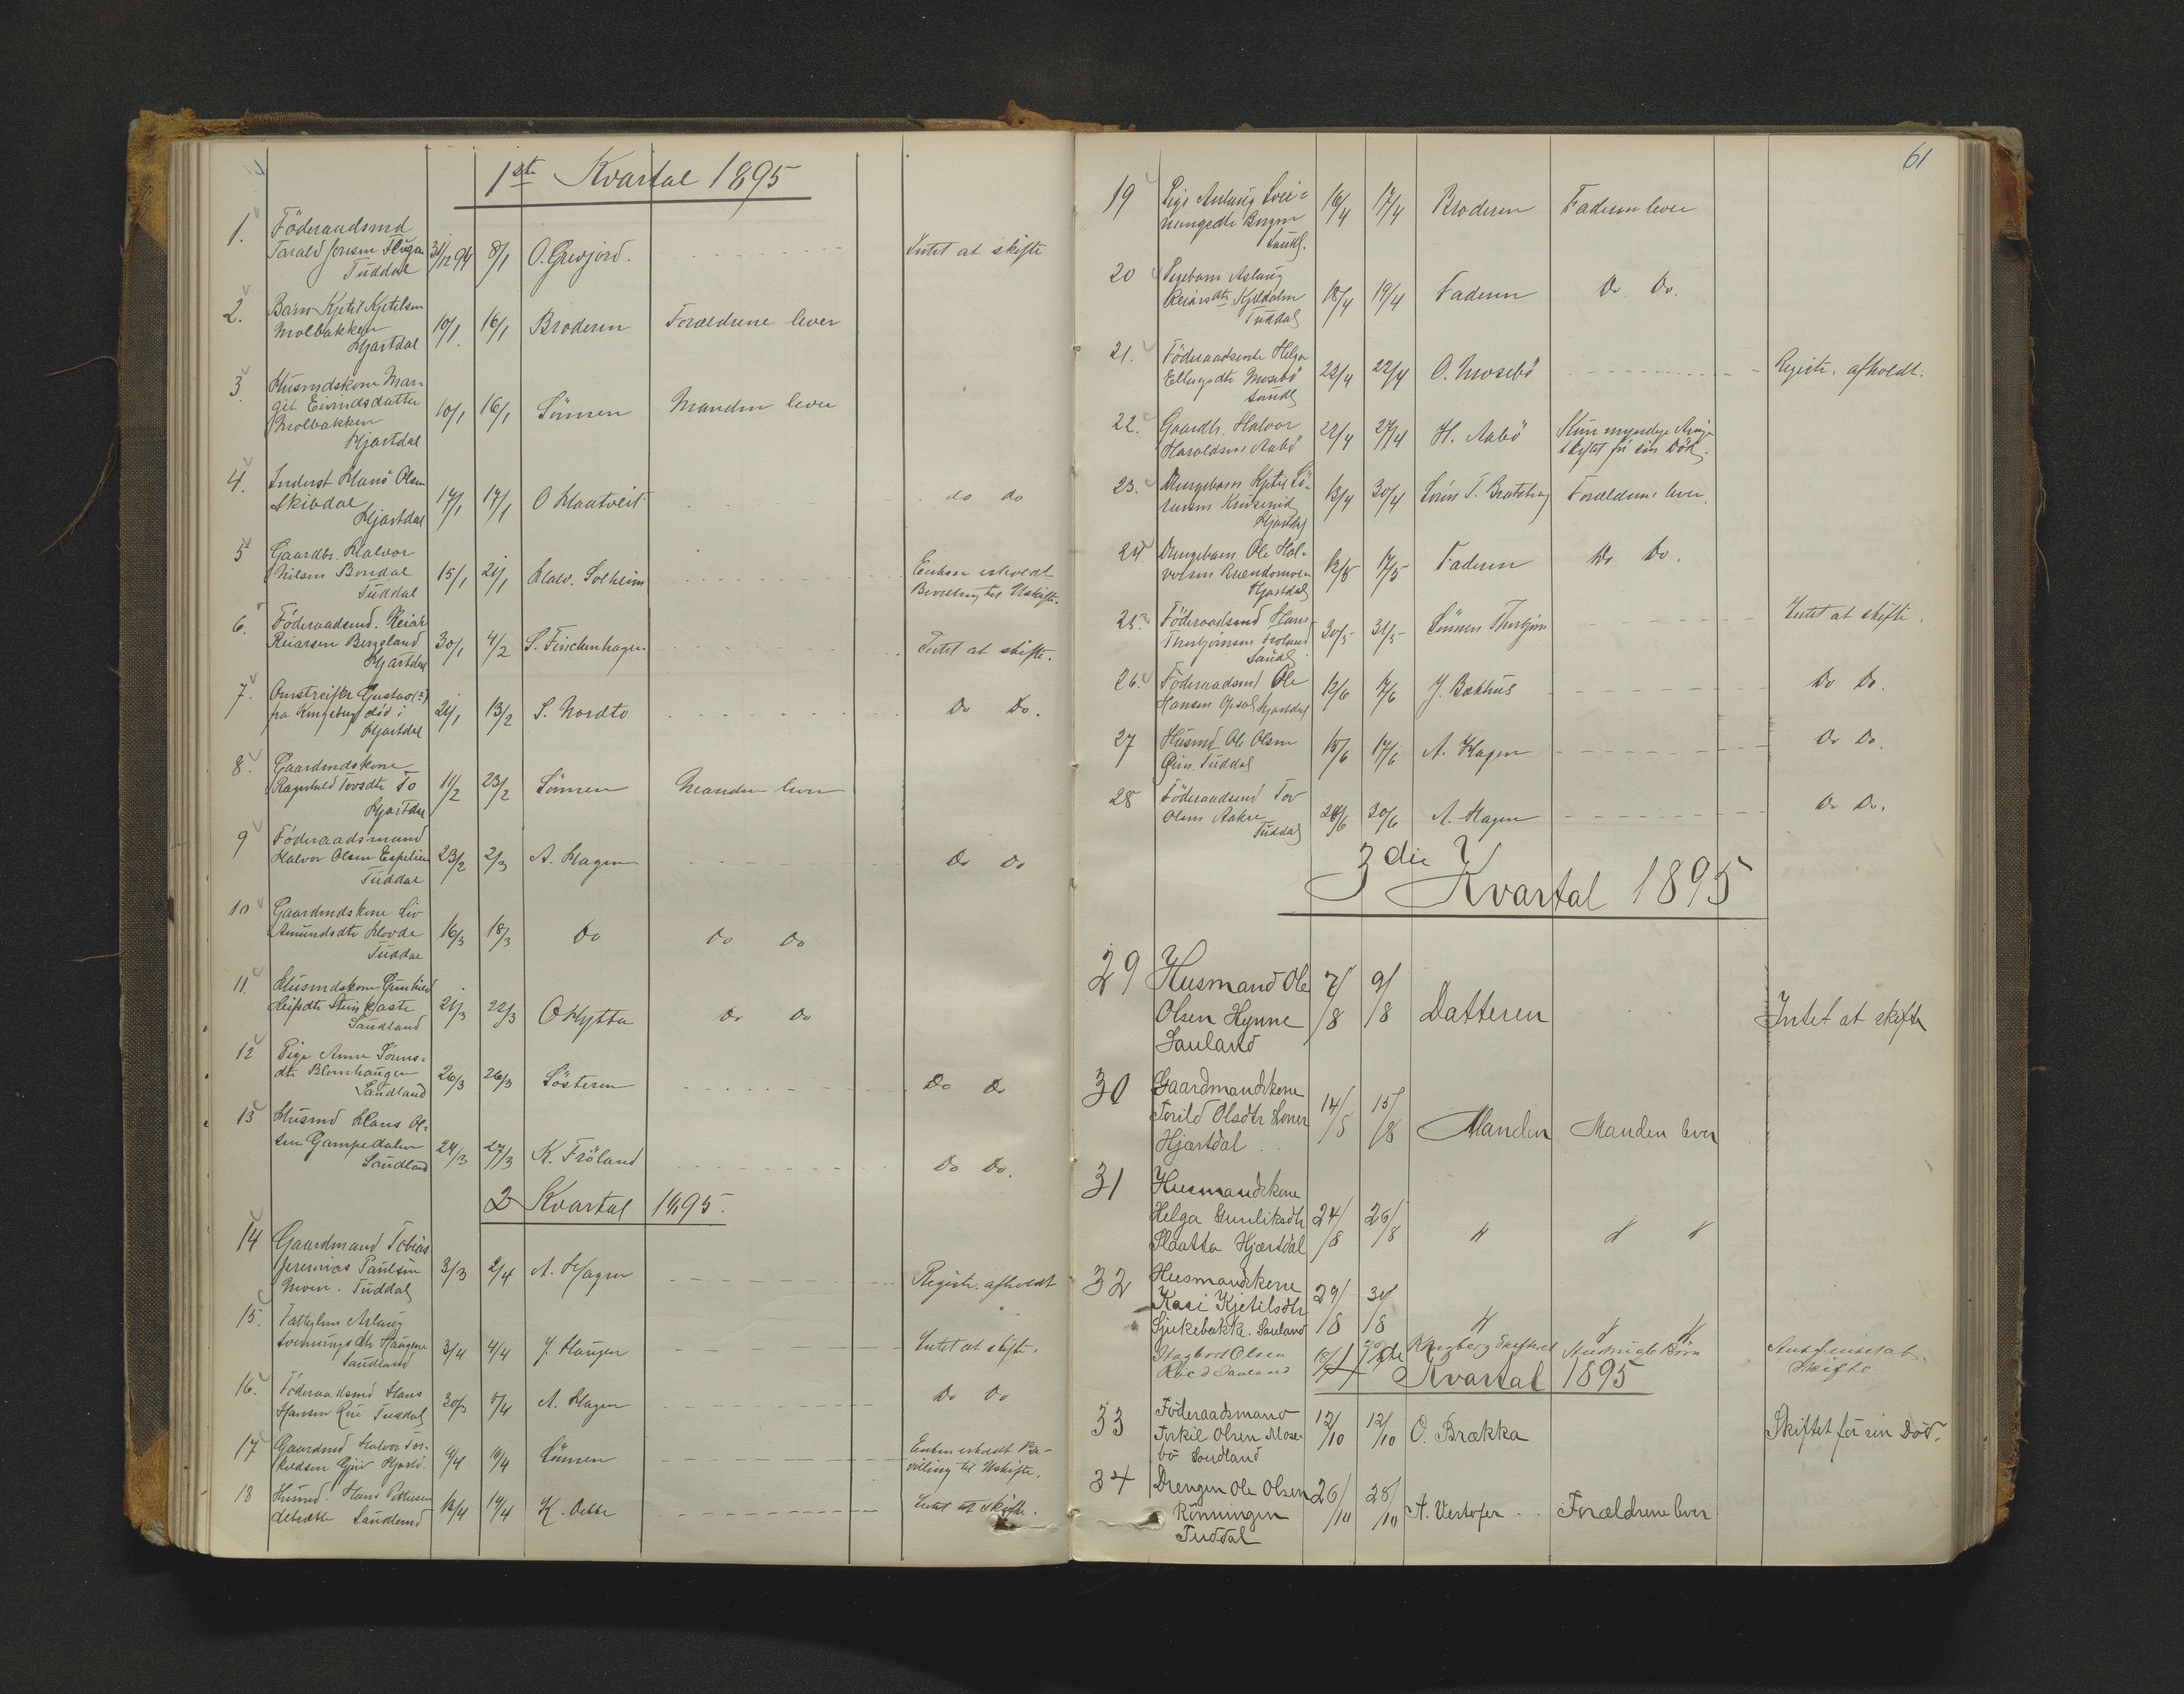 1ste Kvartal 1895
1. Föderaadsmd
Tarald Jonsen Flugan
Tuddal 31/12 94 8/1 O. Grevjord. Intet at skifte
2. Barn Kjetil Kjetilsen
Molbakken
Hjartdal 10/1 16/1 Broderen Forældrene lever
3. Husmdskone Mar-
git Eivindsdatter
Molbakken
Hjartdal 10/1 16/1 Sönnen Manden lever
4. Inderst Hans Olsen
Skibdal
Hjartdal 14/1 17/1 O Haatveit do do
5 Gaardbr. Halvor
Nilsen Bondal
Tuddal 15/1 21/1 Halv. Solheim Enken erholdt
Bevilling til Uskifte.
6. Föderaadsmd. Reiar
Reiarsen Bergland
Hjartdal 30/1 4/2 S. Finckenhagen Intet at skifte.
7. Omstreifer Gustav (?)
fra Kongsberg död i
Hjartdal 21/1 13/2 S. Nordbö Do Do.
8. Gaardmdskone
Ragnhild Tovsdtr
Hjartdal 11/2 23/2 Sönnen Manden lever
9 Föderaadsmand
Halvor Olsen Espelien
Tuddal 23/2 2/3 A. Hagen Do Do
10 Gaardmdskone Liv
Amundsdtr Hovde
Tuddal 16/3 18/3 Do Do Do
11. Husmdskone Gunhild
Leifsdtr Steinkaste
Saudland 21/3 22/3 O Hytta Do Do
12 Pige Anne Sönns-
dtr Blomhaugen
Saudland 26/3 26/3 Sösteren Do Do
13 Husmd Hans Ol-
sen Gampedalen
Saudland 24/3 27/3 K. Fröland Do Do.
2 Kvartal 1895.
14 Gaardmand Tobias
Jeremias Paulsen
Moen. Tuddal 3/3 2/4 A. Hagen Registr. afholdt
15. Aslaug
Sveinungsdtr Haugene
Saudland 3/4 4/4 J. Haugen Intet at skifte.
16. Föderaadsmd Hans
Hansen Rui Tuddal 30/3 5/4 A. Hagen Do Do
17 Gaardmd Halvor Tor-
kildsen Gjuv Hjartd. 9/4 19/4 Sönnen Enken erholdt Be-
villing til Uskifte.
18 Husmd. Hans Pettersen
Saudland 13/4 14/4 K. Intet at skifte.
61
19 Pige Aslaug Svei-
nungsdtr Bergen
Saudl. 16/4 17/4 Broderen Faderen lever
20 Pigebarn Aslaug
Reiarsdtr Kjeldalen
Tuddal 18/4 19/4 Faderen Do Do.
21. Föderaadsenke Helga
Ellingsdtr Mosebö
Saudl 22/4 22/4 O. Mosebö Registr. afholdt.
22. Gaardbr. Halvor
Haraldsen Aabö 22/4 27/4 H. Aabö Kun myndige Arvinger
skiftet för sin Död.
23. Drengebarn Kjetil Sö-
rensen
Hjartdal 13/4 30/4 Sören T. Bratsberg Forældrene lever.
24. Drengebarn Ole Hal-
vorsen
Hjartdal 12/5 17/5 Faderen Do Do.
25. Föderaadsmd Hans
Thorbjörnsen Froland
Saudl. 30/5 31/5 Sönnen Thorbjörn Intet at skifte.
26. Föderaadsmd Ole
Hansen Opsal Hjartdal 12/6 17/6 J. Bækhus Do Do.
27 Husmd Ole Olsen
Tuddal 15/6 17/6 A. Hagen Do Do.
28 Föderaadsmd Tov
Olsen Aakre
Tuddal 28/6 30/6 A. Hagen Do Do.
3die Kvartal 1895
29 Husmand Ole
Olsen Hynne
Sauland 7/8 9/8 Datteren Intet at skifte
30 Gaardmandskone
Torild Olsdtr Loner
Hjartdal 14/5 15/8 Manden Manden lever
31 Husmandskone
Helga Gunliksdtr
Slaatta Hjartdal 24/8 26/8 " " "
32 Husmandskone
Kari Kjetilsdtr
Sjukebakke. Sauland 29/8 31/8 " " "
Olsen
Sauland Kongsberg Börn
Skifte
Kvartal 1895
33 Föderaadsmand
Torkil Olsen Mose-
bö Saudland 12/10 12/10 O. Brækka Skiftet för sin Död.
34 Drengen Ole Olsen
Rönningen
Tuddal 26/10 28/10 A. Forældrene lever